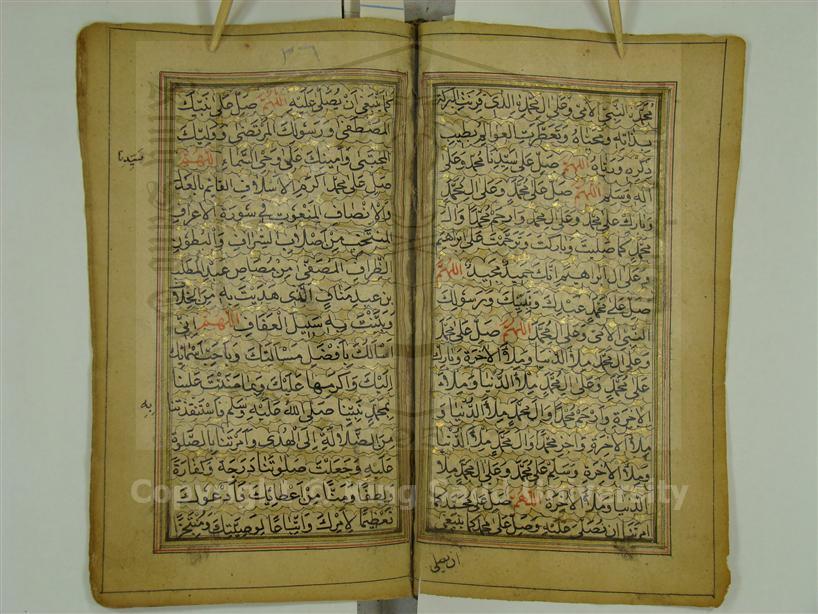 محمد النبي الامي وعلى ال محمد الذي
ذكره اللهم صل على سيدنا محمد وعلى
اله وسلم اللهم صل على محمد وعلى ال محمد
وبارك على محمد وعلى ال محمد وارحم محمدا وال
محمد كما صليت وباركت وترحمت على ابراهيم
وعلى ال ابراهيم انك حميد مجيد اللهم
صل على محمد عبدك ونبيك ورسولك
النبي الامي وعلى ال محمد اللهم صل على محمد
وعلى ال محمد ملأ الدنيا وملأ الاخرة وبارك
على محمد وعلى ال محمد ملأ الدنيا وملأ
الاخرة وارحم محمدا وال محمد ملأ الدنيا و
ملأ الاخرة واجز محمدا وال محمد ملأ الدنيا
وملأ الاخرة وسلم على محمد وعلى ال محمد ملأ
الدنيا وملأ الاخرة اللهم صل على محمد كما
امرتنا ان نصلي عليه وصل على محمد كما ينبغي
ان يصلى
٣٦
كما ينبغي ان يصلى عليه اللهم صل على نبيك
المصطفى ورسولك المرتضى ووليك
المجتبى وامينك على وحي السماء اللهم
سيدنا
صل على محمد اكرم الاسلاف القائم بالعدل
والانصاف المنعوت في سورة الاعراف
المنتخب من اصلاب الشراف والبطون
الظراف المصفى من مصاص عبد المطلب
بن عبد مناف الذي هديت به من الخلاف
وبينت به سبيل العفاف اللهم اني
اسالك بافضل مسالتك وباحب اسمائك
اليك واكرمها عليك وبما مننت علينا
به
بمحمد نبينا صلى الله عليه وسلم فاستنقذتنا
من الضلالة الى الهدى وامرتنا بالصلوة
عليه وجعلت صلوتنا درجة وكفارة
ولطفا ومنا من عطائك فادعوك
تعظيما لامرك واتباعا لوصيتك ومنتجزا
Copyright © King Saud University